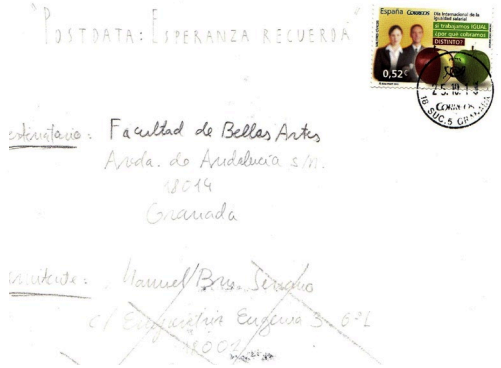 "POSTDATA: ESPERANZA RECUERDA"
España CORREOS
Día Internacional de la
igualdad salarial
si trabajamos IGUAL
¿por qué cobramos
DISTINTO?
0,52€
25.10.13
CORREOS
18 SUC.5 GRANADA
estinatario: Facultad de Bellas Artes
Avda. de Andalucía s/n.
18014
Granada
emitente: Manuel
c/ Emperatriz Eugenia 3
18002